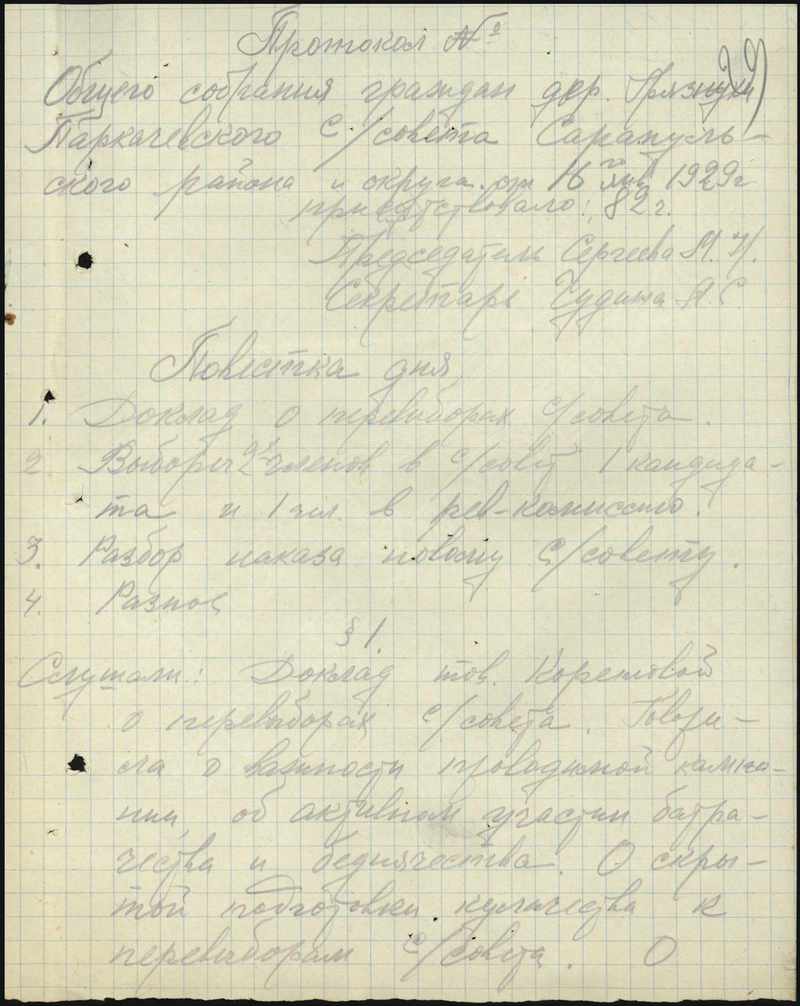 Протокол №
29
Общего собрания граждан дер. Грязнухи
Паркачевского с/совета Сарапуль-
ского района и округа от 16го янв 1929г
присутствовало: 82 г.
Председатель Сергеева М. И.
Секретарь Чудина А С
Повестка дня
1. Доклад о перевыборах с/совета.
2. Выборы 2х членов в с/совет 1 кандида-
та и 1 чл. в рев-комиссию.
3. Разбор наказа новому с/совету.
4. Разное
§ 1.
Слушали: Доклад тов. Кореповой
о перевыборах с/совета. Говори-
ла о важности проводимой кампа-
нии, об активном участии батра-
чества и беднячества. О скры-
той подготовки кулачества к
перевыборам с/совета. О